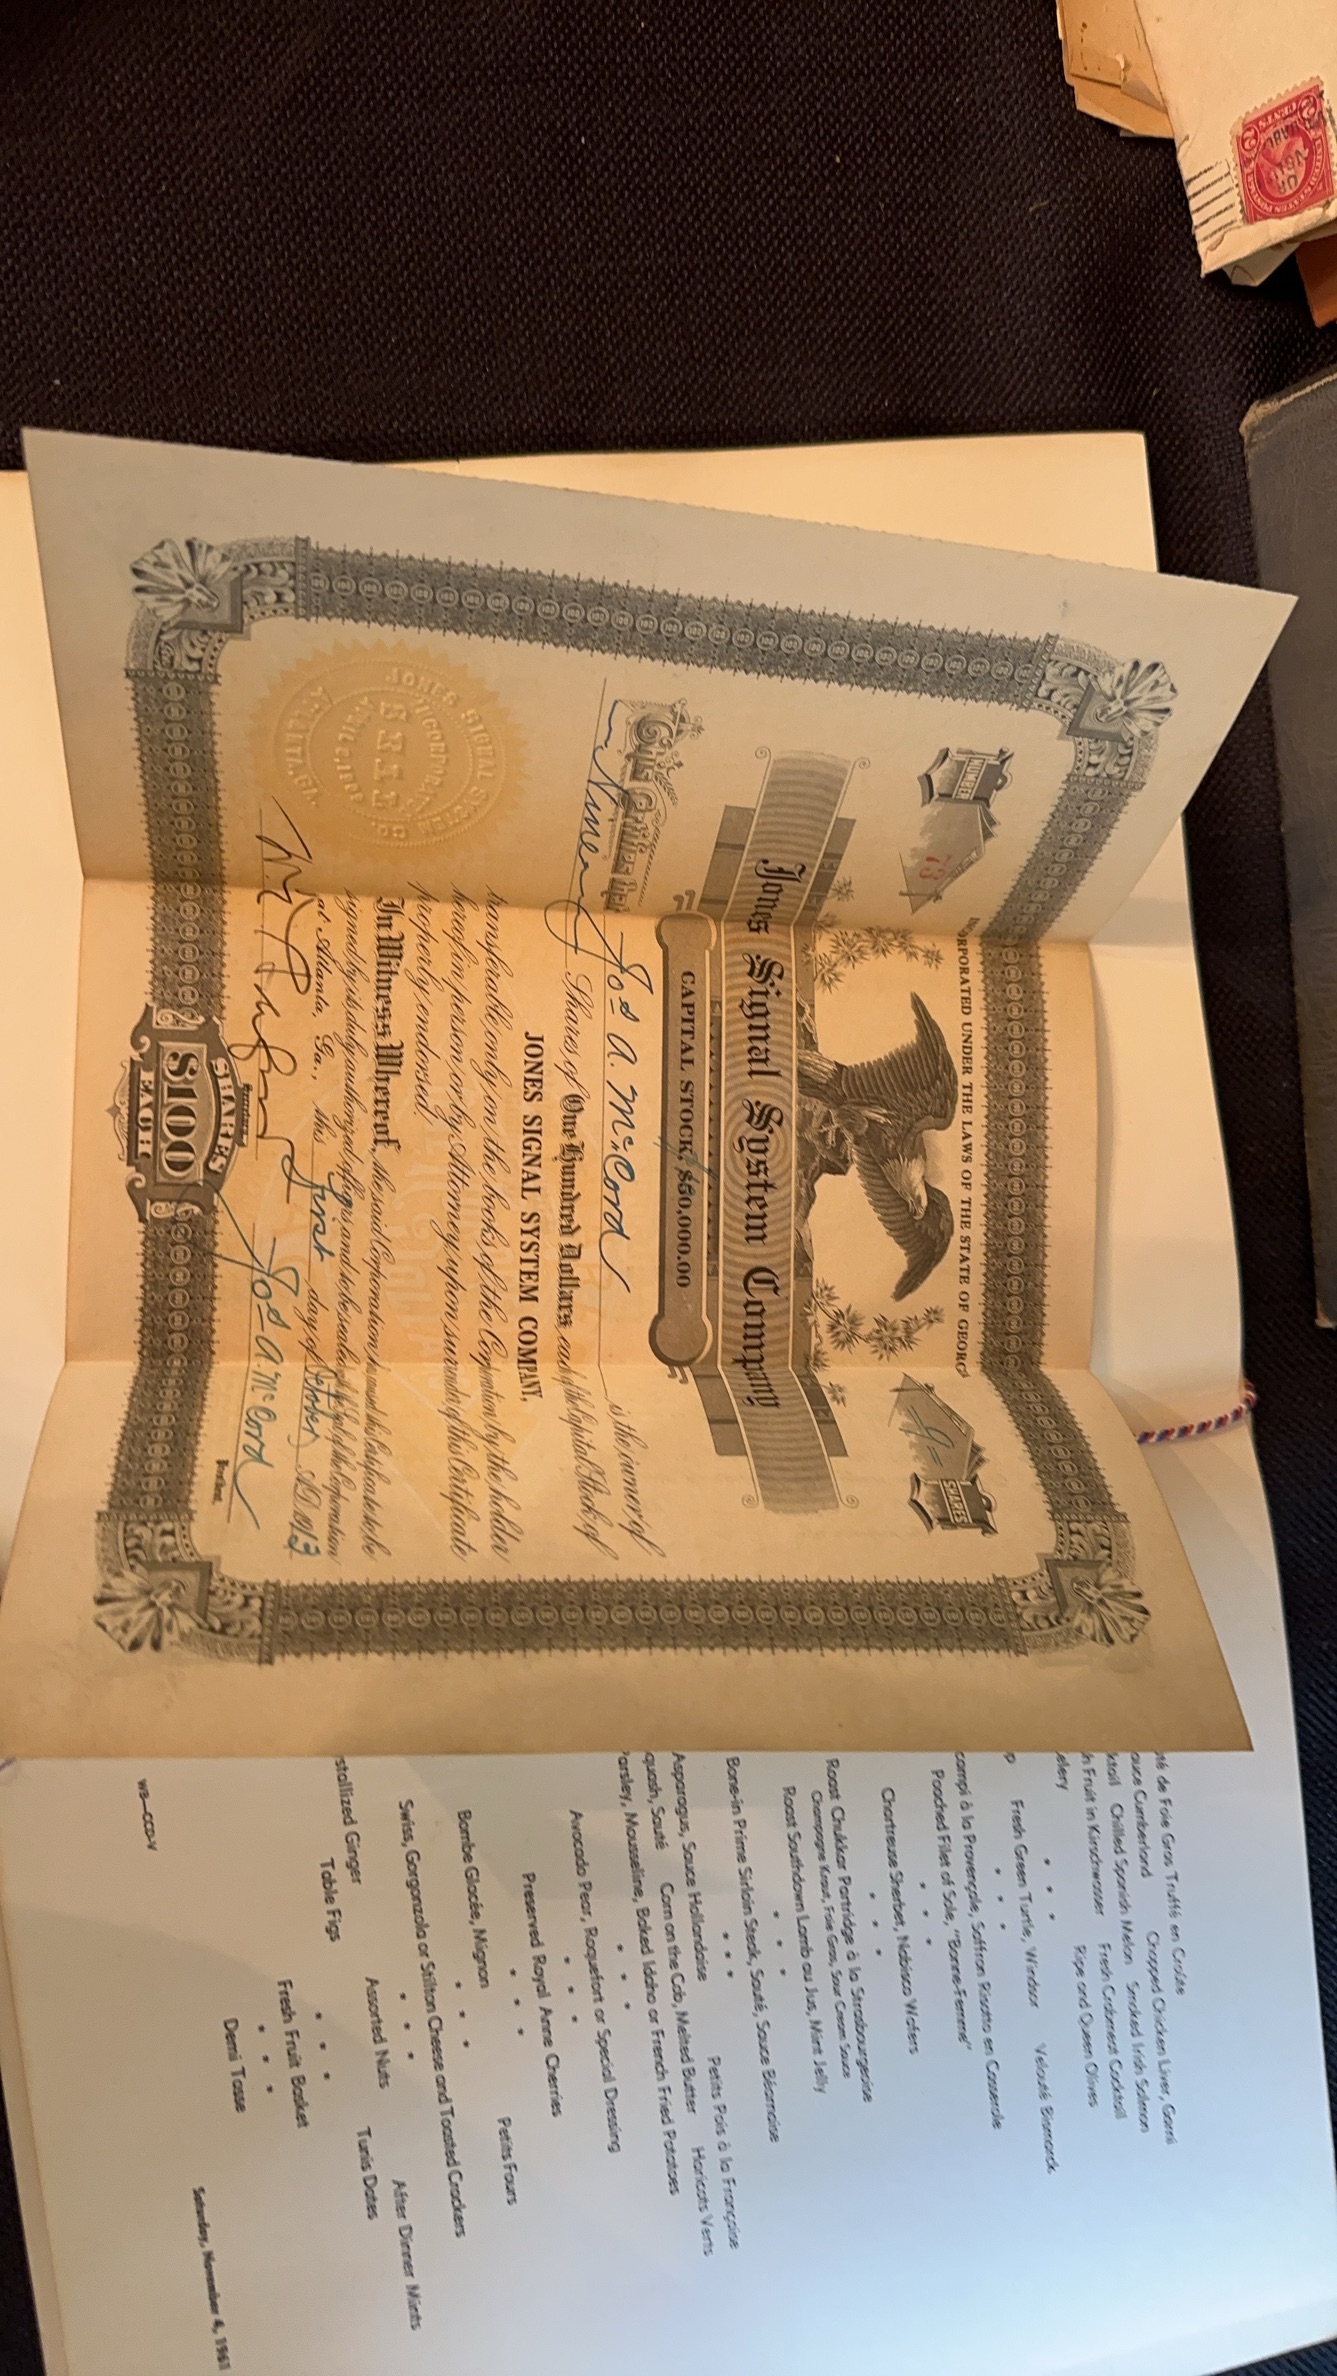 INCORPORATED UNDER THE LAWS OF THE STATE OF GEORG
NUMBER
73
9
SHARES
Jones Signal System Company
CAPITAL STOCK, $50,000.00
This Certifies that Jos A. McCord is the owner of
Shares of One Hundred Dollars each of the Capital Stock of
JONES SIGNAL SYSTEM COMPANY,
transferable only on the books of the Corporation by the holder
hereof in person or by Attorney upon surrender of this Certificate
properly endorsed.
In Witness Whereof, the said Corporation has caused this Certificate to be
signed by its duly authorized officers and to be sealed with the Seal of the Corporation
at Atlanta, Ga., this First day of A.D. 1913
Jos A. McCord
President.
JONES SIGNAL SYSTEM CO.
INCORPORATED
SEAL
ATLANTA, GA.
SHARES
$100
EACH
té de Foie Gras Truffé en Croûte Chopped Chicken Liver, Garni
auce Cumberland Smoked Irish Salmon
ktail Chilled Spanish Melon Fresh Crabmeat Cocktail
h Fruit in Kirschwasser Ripe and Queen Olives
elery
Fresh Green Turtle, Windsor Velouté Bismarck
p
campi à la Provençale, Saffron Risotto en Casserole
Poached Fillet of Sole, "Bonne-Femme"
Chartreuse Sherbet, Nabisco Wafers
Roast Chukkar Partridge à la Strasbourgeoise
Champagne Kraut, Foie Gras, Sour Cream Sauce
Roast Southdown Lamb au Jus, Mint Jelly
Bone-in Prime Sirloin Steak, Sauté, Sauce Béarnaise
Asparagus, Sauce Hollandaise Petits Pois à la Française
quash, Sauté Corn on the Cob, Melted Butter Haricots Verts
Parsley, Mousseline, Baked Idaho or French Fried Potatoes
Avocado Pear, Roquefort or Special Dressing
Preserved Royal Anne Cherries
Bombe Glacée, Mignon Petits Fours
Swiss, Gorgonzola or Stilton Cheese and Toasted Crackers
stallized Ginger Assorted Nuts After Dinner Mints
Table Figs Tunis Dates
Fresh Fruit Basket
Demi Tasse
WB—CCD-V
Saturday, November 4, 1961
UNITED STATES POSTAGE
2 CENTS 2